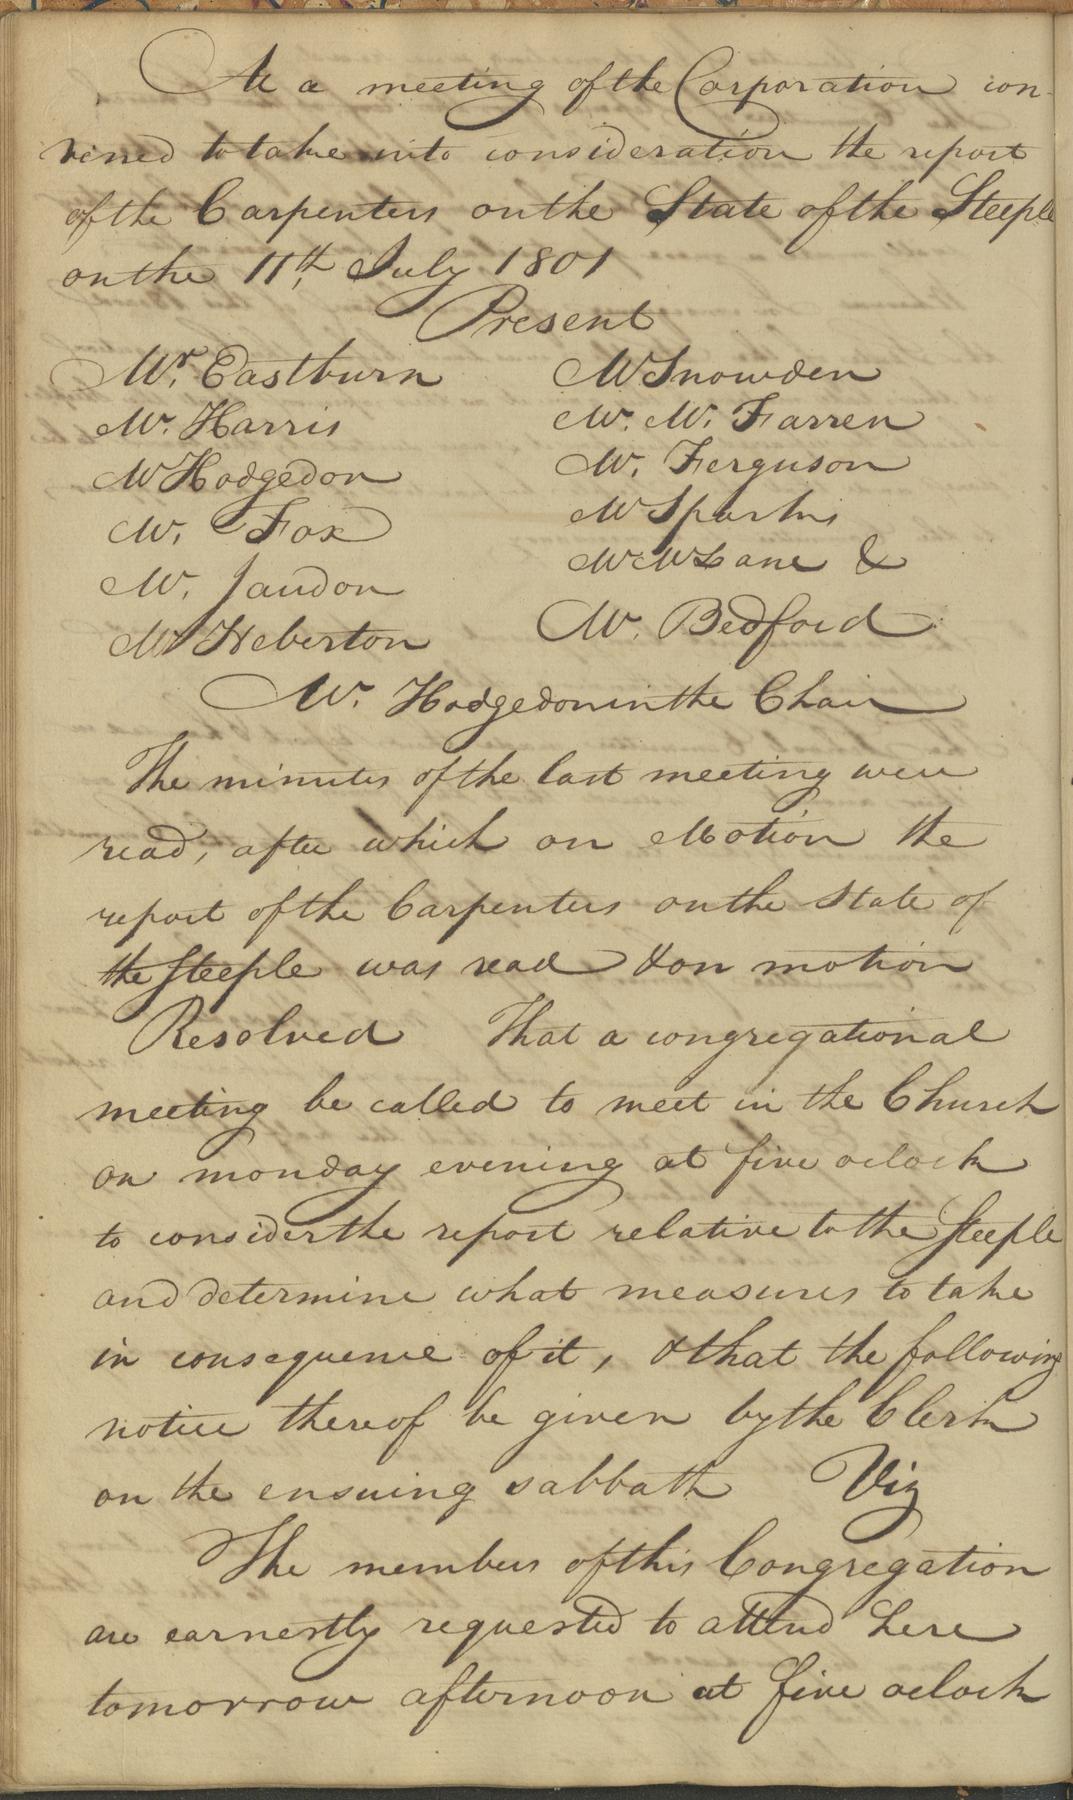 At a meeting of the Corporation con-
vened to take into consideration the report
of the Carpenters on the State of the Steeple
on the 11th, July 1801
Present
Mr. Eastburn
Mr. Harris
Mr Hodgedon
Mr. Fox
Mr. Jaudon
Mr Heberton
Mr Snowden
Mr. Mc. Farren
Mr. Ferguson
Mr Sparks
Mr McLane &
Mr. Bedford
Mr. Hodgedon in the Chair
The minutes of the last meeting were
read, after which on Motion the
report of the Carpenters on the state of
the steeple was read & on motion
Resolved That a congregational
meeting be called to meet in the Church
on monday evening at five oclock
to consider the report relative to the steeple
and determine what measures to take
in consequence of it, & that the following
notice thereof be given by the Clerk
on the ensuing sabbath Viz
The members of this Congregation
are earnestly requested to attend here
tomorrow afternoon at five oclock